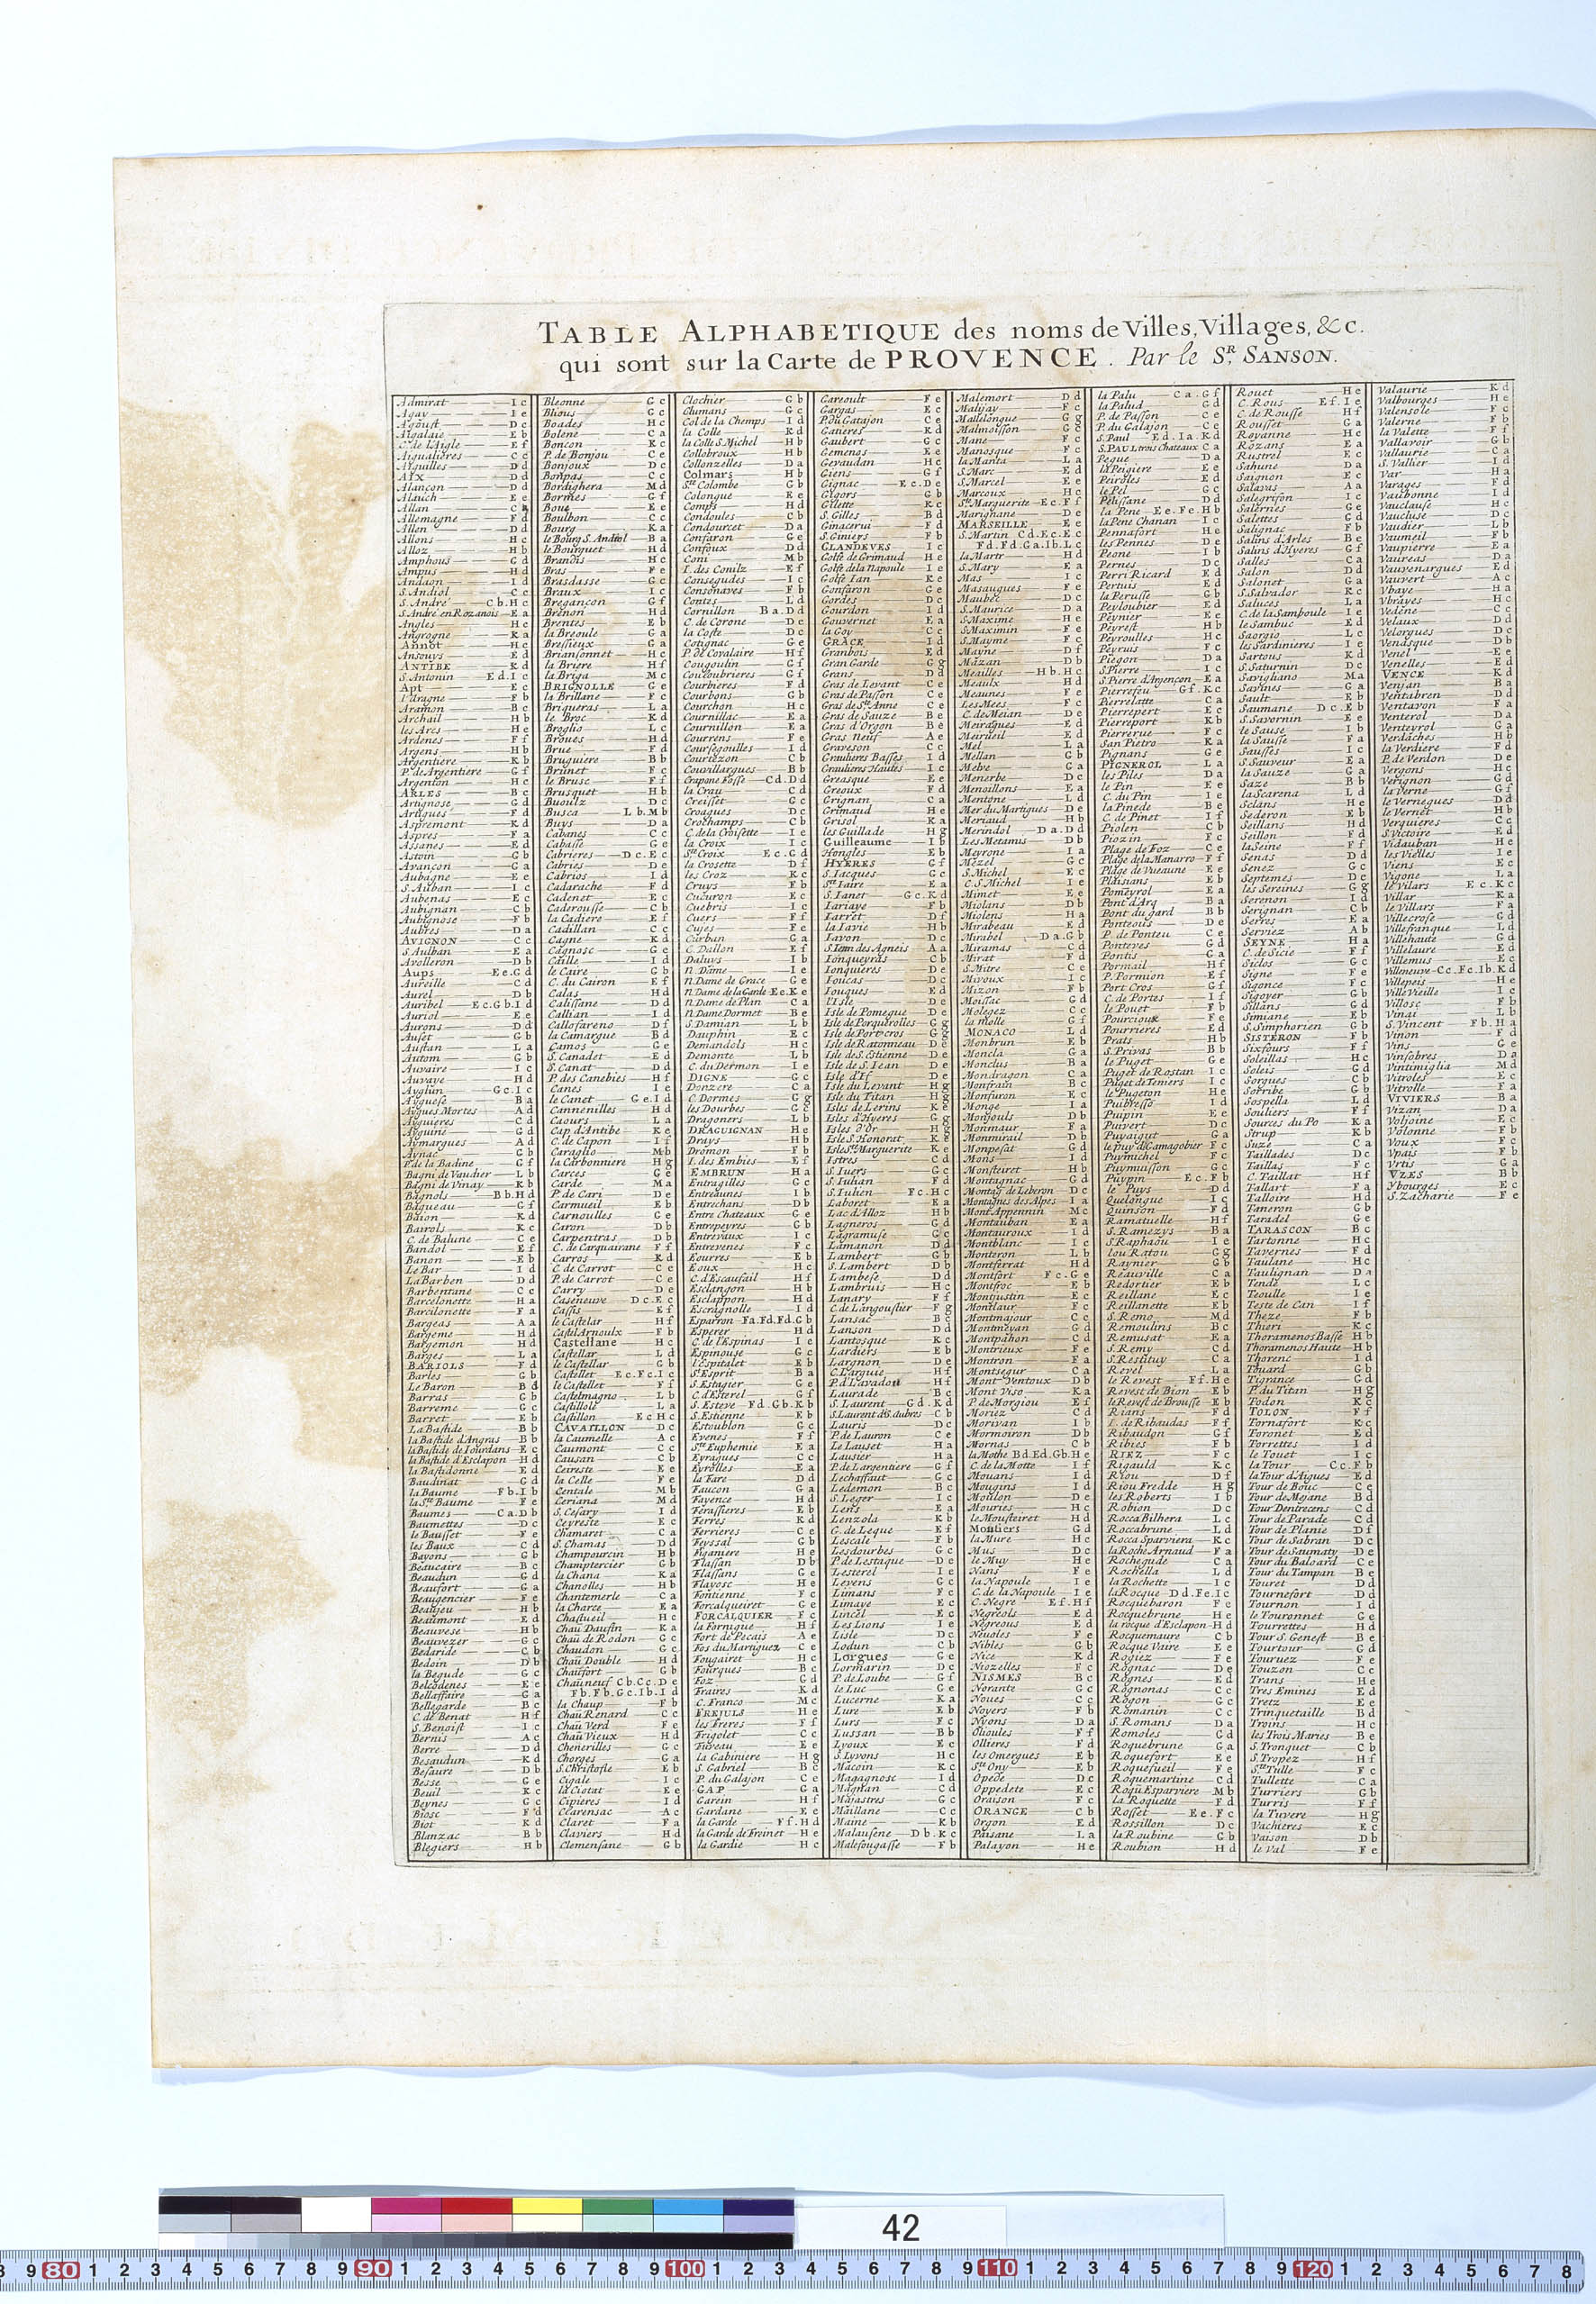 TABLE ALPHABETIQUE des noms de Villes, Villages, &c.
qui sont sur la Carte de PROVENCE. Par le Sr. SANSON.
Admirat I c
Agay I e
Agoust D c
Aigalaie E b
C. de l'Aigle E f
Aigualieres C c
Aiguilles D d
AIX D d
Alançon D d
Alauch E e
Allan C a
Allemagne F d
Allen D d
Allons H c
Alloz H b
Amphous G d
Ampus H d
Andaon I d
S. Andiol C c
S. André C b. H c
S. André en Rozanois E a
Angles H c
Angrogne K a
Annot H c
Ansouys E d
ANTIBE K d
S. Antonin E d. I c
Apt E c
Aramon B c
Archail H b
les Arcs H e
Ardenes F f
Argens H b
Argentiere K b
P. de Argentiere G f
Argenton H c
ARLES B c
Artignose G d
Artigues F d
Aspremont K d
Aspres F a
Assanes E d
Astoin G b
Avançon G a
Aubagne E e
S. Auban I c
Aubenas E c
Aubignan C b
Aubignose F b
Aubres D a
AVIGNON C c
S. Aulban E a
Avolleron D b
Aups E e. G d
Aureille C d
Aurel D b
Auribel E c. G b. I d
Auriol E e
Aurons D d
Auset G b
Austan L a
Autom G b
Auvaire I c
Auvaye H d
Ayglun G c. I c
Ayguese B a
Aygues Mortes A d
Ayguieres C d
Ayguine G d
Aymargues A d
Aynac G b
P. de la Badine G f
Bagni de Vaudier L b
Bagni de Vinay K b
Bagnols B b. H d
Bagueau G f
Baion K d
Bairols K c
C. de Balune C e
Bandol E f
Banon E b
Le Bar I d
La Barben D d
Barbentane C c
Barcelonette H a
Barcilonette F a
Bargeas A a
Bargeme H d
Bargemon H d
Barges L a
BARIOLS F d
Barles G b
Le Baron B d
Barras G b
Barreme G c
Barret E b
La Bastide B b
la Bastide d'Angras B b
la Bastide de Iourdans E c
la Bastide d'Esclapon H d
la Bastidonne E d
Baudinat G d
la Baume F b. I b
la Ste Baume F e
Baumes C a. D b
Baumettes D c
le Bausset F e
les Baux C d
Bayons G b
Beaucaire B c
Beaudun G d
Beaufort G a
Beaugencier F e
Beaujeu H b
Beaumont E d
Beauvese H b
Beauvezer G c
Bedaride C b
Bedoin D b
la Begude G c
Belcodenes E e
Bellaffaire G a
Bellegarde B c
C. de Benat H f
S. Benoist I c
Bernis A c
Berre D d
Besaudun K d
Besaure D b
Besse G e
Beuil K c
Beynes G c
Biosc F d
Biot K d
Blanzac B b
Blegiers H b
Bleonne G c
Blious G c
Boades H c
Bolene C a
Boncon K c
P. de Bonjou C e
Bonjoux D c
Bonpas C c
Bordighera M d
Bormes G f
Bouc E e
Boulbon C c
Bourg K a
le Bourg S. Andiol B a
le Bourguet H d
Brandis H c
Bras F e
Brasdasse G c
Braux I c
Bregançon G f
Brenon H d
Brentes E b
la Breoule G a
Bressieux G a
Briansonnet H c
la Briere H f
la Briga M c
BRIGNOLLE G e
la Brillane F c
Briqueras L a
le Broc K d
Broglio L c
Broues H d
Brue F d
Bruguiere B b
Brunet F c
le Brusc F f
Brusquet H b
Buoulz D c
Busca L b. M b
Buys D a
Cabanes C c
Cabasse G e
Cabrieres D c. E c
Cabries D e
Cabrios I d
Cadarache F d
Cadenet E c
Caderousse C b
la Cadiere E f
Cadillan C c
Cagne K d
Caignosc G c
Caille I d
le Caire G b
C. du Cairon E f
Calas H d
Calissane D d
Callian I d
Callosareno D f
la Camargue B d
Camos G e
S. Canadet E d
S. Canat D d
P. des Canebies H f
Canes I e
le Canet G e. I d
Cannenilles H d
Caours L a
Cap d'Antibe K e
C. de Capon I f
Caraglio M b
la Carbonniere H g
Carces G e
Carde M a
P. de Cari D e
Carmueil E b
Carnoulles G e
Caron D b
Carpentras D b
C. de Carquairane F f
Carros K d
C. de Carrot C e
P. de Carrot C e
Carry D e
Caseneuve D c. E c
Cassis E f
le Castelar H f
Castel Arnoulx F b
Castellane H c
Castellar L d
le Castellar G b
Castellet E c. F c. I c
le Castellet F f
Castelmagno L b
Castillole L a
Castillon E c H c
CAVAILLON D c
la Caumelle A c
Caumont C c
Causan C b
Ceireste E e
la Celle F e
Centale M b
Ceriana M d
S. Cesary I d
Ceyreste E c
Chamaret C a
S. Chamas D d
Champourcin H b
Champtercier G b
la Chana K a
Chanolles H b
Chantemerle C a
la Charce E a
Chasteuil H c
Chau Daufin K a
Chau de Rodon G c
Chaudon G c
Chau Double H d
Chaufort G b
Chauneuf C b. C c. D e
F b. F b. G c. I b. I d
la Chaup F b
Chau Renard C c
Chau Verd F e
Chau Vieux H d
Chenerilles G c
Chorges G a
S. Christofle E b
Cigale I c
la Ciotat E e
Cipieres I d
Clarensac A c
Claret F a
Claviers H d
Clemensane G b
Clochier G b
Clumans G c
Col de la Chemps I d
la Colle K d
la Colle S. Michel H b
Collobroux H b
Collonzelles D a
Colmars H b
Ste Colombe G b
Colongue E e
Comps H d
Condoules C b
Condourcet D a
Confaron G e
Confoux D d
Coni M b
I. des Conilz E f
Consegudes I c
Consonaves F b
Contes L d
Cornillon B a. D d
C. de Corone D e
la Coste D c
Cotignac G e
P. de Covalaire H f
Cougoulin G f
Coucoubrieres G f
Courbieres F d
Courbons G b
Courchon H c
Cournillac E a
Cournillon E a
Courrens F e
Coursegoulles I d
Courtezon C b
Couvillargues B b
Crapone Fosse C d. D d
la Crau C d
Creisset G c
Croagues D c
Crochamps C b
C. de la Croisette I e
la Croix I c
Ste Croix E c. G d
la Crosette D f
les Croz K c
Cruys F b
Cucuron E c
Cuebris I c
Cuers F f
Cuges F e
Curbun G a
C. Daillon E f
Daluys I b
N. Dame I e
N. Dame de Grace G e
N. Dame de la Garde E e. K e
N. Dame de Plan C a
N. Dame Dormet B e
S. Damian L b
Dauphin E c
Demandols H c
Demonte L b
C. du Dermon I e
DIGNE G c
Donzere C a
C. Dormes G g
les Dourbes G c
Dragoners L b
DRAGUIGNAN H e
Drays H b
Dromon F b
I. des Embies E f
EMBRUN H a
Entragilles G c
Entreaunes I b
Entrechans D b
Entre Chateaux G e
Entrepeyres G b
Entrevaux I c
Entrevenes F c
Eourres E b
Eoux H c
C. d'Escaufail H f
Esclangon H b
Esclappon H d
Escragnolle I d
Esparron F a. F d. F d. G b
Esperer H d
C. de l'Espinas I e
Espinouse G c
l'Espitalet E b
S. Esprit B a
S. Estagier G e
C. d'Esterel G f
S. Esteve F d. G b. K b
S. Estienne E b
Estoublon G c
Evenes F f
Ste Euphemie E a
Eyragues C c
Eyrolles E a
la Fare D d
Faucon G a
Fayence H d
Ferassieres E b
Ferres K d
Ferrieres C e
Feyssal G b
Figaniere H e
Flassan D b
Flassans G e
Flayosc H e
Fontienne F c
Forcalqueiret G e
FORCALQUIER F c
la Fornigue H f
Fort de Pecais A e
Fos du Martiguez C e
Fougairet H c
Fourques B c
Foz G d
Fraires K d
C. Franco M c
FREJULS H e
les Freres F f
Frigolet C c
Fuveau E e
la Gabiniere H g
S. Gabriel B c
P. du Galajon C e
GAP G a
Garein H f
Gardane E e
la Garde F f. H d
la Garde de Freinet H e
la Gardie H c
Gareoult F e
Gargas E c
P. du Gatajon C e
Gatieres K d
Gaubert G c
Gemenos E e
Gevaudan H c
Giens G f
Gignac E c. D e
Gigors G b
Gilette K c
S. Gilles B d
Ginacerui F d
S. Giniers F b
GLANDEVES I c
Golfe de Grimaud H e
Golfe de la Napoule I e
Golfe Ian K e
Gonfaron G e
Gordes D c
Gourdon I d
Gouvernet E a
la Goy C c
GRACE I d
Granbois E d
Gran Garde G g
Grans D d
Gras de Levant C e
Gras de Passon C e
Gras de Ste Anne C e
Gras de Sauze B e
Gras d'Orgon B e
Gras Neuf A e
Graveson C c
Graulieres Basses I d
Graulieres Hautes I c
Greasque E e
Greoux F d
Grignan C a
Grimaud H e
Grisol K a
les Guillade H g
Guilleaume I b
Hongles E b
HYERES G f
S. Iacques G c
Ste Iaire E a
S. Ianet G c. K d
Iariaye F b
Iarret D f
la Iavie H b
Iavon D c
S. Iean des Agneis A a
Ionqueyras C b
Ionquieres D e
Ioucas D c
Iouques E d
l'Isle D c
Isle de Pomegue D e
Isle de Porquerolles G g
Isle de Portcros G g
Isle de Ratonneau D e
Isle de S. Estienne D e
Isle de S. Iean D e
Isle d'If D e
Isle du Levant H g
Isle du Titan H g
Isles de Lerins K e
Isles d'Hyeres G g
Isles d'Or H g
Isle S. Honorat K e
Isle Ste Marguerite K e
Istres C d
S. Iuers G c
S. Iulian F d
S. Iulien F c. H c
Laboret E a
Lac d'Alloz H b
Lagneros G d
Lagramuse G c
Lamanon D d
Lambert G b
S. Lambert D b
Lambesc D d
Lambruis H c
Lanary F f
C. de Langoustier F g
Lansac B c
Lanson D d
Lantosque K c
Lardiers E b
Largnon D e
C. Larguie H f
P. d'Lavadou H f
Laurade B c
S. Laurent G d. K d
S. Laurent d'S. Aubres C b
Lauris D c
P. de Lauron C e
Le Lauset H a
Lausier H a
P. de L'argentiere G f
Lechaffaut G c
Ledemon B c
S. Leger I c
Lens E a
Lenzola K b
G. de Leque E f
Lescale F b
Lesdourbes G c
P. de Lestaque D e
Lesterel I e
Levens G c
Limans F c
Limaye E c
Lincel E c
Les Lions I e
Lisle D c
Lodun C b
Lorgues G e
Lormarin D c
P. de Loube G f
le Luc G e
Lucerne K a
Lure E b
Lurs F c
Lussan B b
Lyoux E c
S. Lyvons H c
Macoin K c
Magagnosc I d
Magnan C d
Majastres G c
Maillane C c
Maine K b
Malausene D b. K c
Malesougasse F b
Malemort D d
Malijay F c
Mallelongue G g
Malmoisson G c
Mane F c
Manosque F c
la Manta L a
S. Marc E d
S. Marcel E e
Marcoux H c
Ste Marguerite E c. F f
Marignane D e
MARSEILLE E e
S. Martin C d. E c. K c
F d. F d. G a. I b. L c
la Martr H d
S. Mary E a
Mas I c
Masaugues F e
Maubec D c
S. Maurice D a
S. Maxime H e
S. Maximin F e
S. Mayme F c
Mayne D f
Mazan D b
Meailles H b. H c
Meaulx H d
Meaunes F e
Les Mees F c
C. de Meian D e
Meirargues E d
Meirueil E d
Mel L a
Mellan G b
Melve G a
Menerbe D c
Menoillons E a
Mentone L d
Mer du Martigues D e
Meriaud H b
Merindol D a. D d
Les Metamis D b
Meyrone I a
Mezel G c
S. Michel E c
C. S. Michel I e
Mimet E e
Miolans D b
Miolens H a
Mirabeau E d
Mirabel D a. G b
Miramas C d
Mirat F d
S. Mitre C e
Mivoux I c
Mizon F b
Moissac G d
Molegez C c
la Molle G f
MONACO L d
Monbrun E b
Moncla G a
Monclus B a
Mondragon C a
Monfrain B c
Monfuron E c
Monge I a
Monjouls D b
Monmaur F a
Monmirail D b
Monpesat G d
Mons I d
Monsteiret H b
Montagnac G d
Montag. de Leberon D c
Montagnes des Alpes I a
Mont Appennin M c
Montauban E a
Montauroux I d
Montblanc I c
Monteron L b
Montferrat H d
Montfort F c. G e
Montfroc E b
Montjustin E c
Montlaur F c
Montmajour C c
Montmeyan G d
Montpahon C d
Montrieux F e
Montron F a
Montsegur C a
Mont Ventoux D b
Mont Viso K a
P. de Morgiou E f
Moriez C d
Morivan I b
Mormoiron D b
Mornas C b
la Mothe B d. E d. G b. H e
C. de la Motte I f
Mouans I d
Mougins I d
Moulon D e
Mouries H c
le Mousteiret H d
Moutiers G d
la Mure H c
Mus D c
le Muy H e
Nans F e
la Napoule I e
C. de la Napoule I e
C. Negre E f. H f
Negreols E d
Negreous E d
Neuoles F e
Nibles G b
Nice K d
Niozelles F c
NISMES B c
Norante G c
Noues C c
Noyers F b
Nyons D a
Olioules F f
Ollieres F d
les Omergues E b
Ste Ony E b
Opede D c
Oppedete E c
Oraison F c
ORANGE C b
Orgon E d
Paisane L a
Palayon H e
la Palu C a. G f
la Palud G d
P. de Passon C e
P. du Galajon C e
S. Paul E d. I a. K d
S. PAUL trois Chateaux C a
Pegue D a
la Pegiere E e
Peiroles E d
le Pel G c
Pelissane D d
la Pene E e. F e. H b
la Pene Chanan I c
Pennafort H e
les Pennes D e
Peone I b
Pernes D c
Perri Ricard E d
Pertuis E d
la Perusse G b
Peyloubier E d
Peynier E e
Peyresc H b
Peyroulles H c
Peyruis F c
Piegon D a
S. Pierre I c
S. Pierre d'Argencon E a
Pierrefeu G f. K c
Pierrelatte C a
Pierrepert E c
Pierreport K b
Pierrerue F c
San Pietro K a
Pignans G e
PIGNEROL L a
les Piles D a
le Pin E e
C. du Pin I e
la Pinede B e
C. de Pinet I f
Piolen C b
Piozin F c
Plage de Foz C e
Plage de la Manarro F f
Plage de Vueaune E e
Plaisians E b
Pomeyrol E a
Pont d'Arq B a
Pont du gard B b
Ponteous D e
P. de Ponteu C e
Ponteves G d
Pontis G a
Pormail H f
P. Pormion E f
Port Cros G f
C. de Portes I f
le Pouet F b
Pourcioux F e
Pourrieres E d
Prats H b
S. Privas B b
le Puget G e
Puget de Rostan I c
Puget de Teniers I c
le Pugeton H e
Puibresso I d
Puipin E e
Puivert D c
Puyaigut G a
le puy de Camagobier F c
Puymichel F c
Puymuisson G c
Puypin E c. F b
le Puys D d
Quelongue I c
Quinson F d
Ramatuelle H f
S. Ramezys B a
S. Raphaou I e
lou Ratou G g
Raynier G b
Reauville C a
Redortier E b
Reillane E c
Reillanette E b
S. Remo M d
Remoulins B c
Remusat E a
S. Remy C d
S. Restituy C a
Revel L a
le Revest F f. H e
Revest de Bion E b
le Revest de Brousse E b
Rians F d
I. de Ribaudas F f
Ribaudon G f
Ribies F b
RIEZ F c
Rigauld K c
Riou D f
Riou Fredde H g
les Roberts I b
Robion D c
Rocca Bilhera L c
Roccabrune L d
Rocca Sparviera K c
la Roche Arnaud F a
Rochegude C a
Rochella L d
la Rochette I c
la Rocque D d. F e. I c
Rocquebaron F e
Rocquebrune H e
la rocque d'Esclapon H d
Rocquemaure C b
Rocque Vaire E e
Rogiez F e
Rognac D e
Rognes E d
Rognonas C c
Rogon G c
Romanin C c
S. Romans D a
Romoles G d
Roquebrune G a
Roquefort E e
Roquefueil F e
Roquemartine C d
Roqu Esparviere M b
la Roquette F d
Rosset E e. F c
Rossillon D c
la Roubine G b
Roubion H d
Rouet H e
C. Rous E f. I e
C. de Rousse H f
Rousset G a
Royanne H c
Rozans E a
Rustrel E c
Sahune D a
Saignon E c
Salavas A a
Salegrifon I c
Salernes G e
Salettes G d
Salignac F b
Salins d'Arles B e
Salins d'Hyeres G f
Salles C a
Salon D d
Salonet G a
S. Salvador K c
Saluces L a
C. de la Samboule I e
le Sambuc E d
Saorgio L c
les Sardinieres I e
Sartous K d
S. Saturnin D c
Savigliano M a
Savines G a
Sault E b
Saumane D c. E b
S. Savornin E e
le Sause I b
la Sausse F a
Sausses I c
S. Sauveur E a
la Sauze G a
Saze B b
la Scarena L d
Sclans H e
Sederon E b
Seillans H d
Seillon F d
la Seine F f
Senas D d
Senez G c
Septemes D e
les Sereines G g
Serenon I d
Serignan C b
Serres E a
Serviez A b
SEYNE H a
C. de Sicie F f
Siclos G c
Signe F e
Sigonce F c
Sigoyer G b
Sillans G d
Simiane E b
S. Simphorien G b
SISTERON F b
Sixfours F f
Soleillas H c
Soleis G d
Sorgues C b
Sorribe G b
Sospella L d
Souliers F f
Sources du Po K a
Strup K b
Suze C a
Taillades D c
Taillas F c
C. Taillat H f
Tallart F a
Talloire H d
Taneron G b
Taradel G e
TARASCON B c
Tartonne H c
Tavernes F d
Taulane H c
Taulignan D a
Tende L c
Teoulle I e
Teste de Can I f
Theze F b
Thieri K c
Thoramenos Basse H b
Thoramenos Haute H b
Thorenc I d
Touard G b
Tigrance G d
P. du Titan H g
Todon K c
TOLON F f
Tornafort K c
Toronet E d
Torrettes I d
le Touet I c
la Tour C c. F b
la Tour d'Aigues E d
Tour de Bouc C e
Tour de Mejane B d
Tour Dentrecens C d
Tour de Parade C d
Tour de Planie D f
Tour de Sabran D c
Tour de Saumaty D e
Tour du Baloard C e
Tour du Tampan B e
Touret D d
Tournefort D d
Tournon I d
le Touronnet G e
Tourrettes H d
Tour S. Genest B e
Tourtour G d
Touruez F e
Touzon C c
Trans H e
Tres Emines E d
Tretz E e
Trinquetaille B d
Troins H c
les Trois Maries B e
S. Tronquet C b
S. Tropez H f
Ste Tulle F c
Tullette C a
Turriers G b
Turris F f
la Tuvere H g
Vachieres E c
Vaison D b
le Val F e
Valaurie K d
Valbourges H e
Valensole F c
Valerne F b
la Valette F f
Vallavoir G b
Vallaurie C a
S. Vallier I d
Var H a
Varages F d
Vaubonne I d
Vauclause H c
Vaucluse D c
Vaudier L b
Vaumeil F b
Vaupierre E a
Vaureas D a
Vauvenargues E d
Vauvert A c
Vbaye H a
Vbrayes H c
Vedene C c
Velaux D d
Velorgues D c
Venasque D b
Venel E e
Venelles E d
VENCE K d
Venjan B a
Ventabren D d
Ventavon F a
Venterol D a
Venteyrol G a
Verdaches H b
la Verdiere F d
P. de Verdon D e
Vergons H c
Verignon G d
la Verne G f
le Vernegues D d
le Vernet H b
Verquieres C c
S. Victoire E d
Vidauban H e
les Vielles I e
Viens E c
Vigone L a
le Vilars E c. K c
Villar K a
le Villars F a
Villecrose G d
Villefranque L d
Villehaute G d
Villelaure E d
Villemus E c
Villeneuve C c. F c. I b. K d
Villepeis H e
Ville Vieille I c
Villosc F b
Vinai L b
S. Vincent F b. H a
Vinon F d
Vins G e
Vinsobres D a
Vintimiglia M d
Vitroles E c
Vitrolle F a
VIVIERS B a
Vizan D a
Voljoine E c
Volonne F b
Voux F c
Vpais F b
Vrtis G a
VZES B b
Ybourges E c
S. Zacharie F e
42